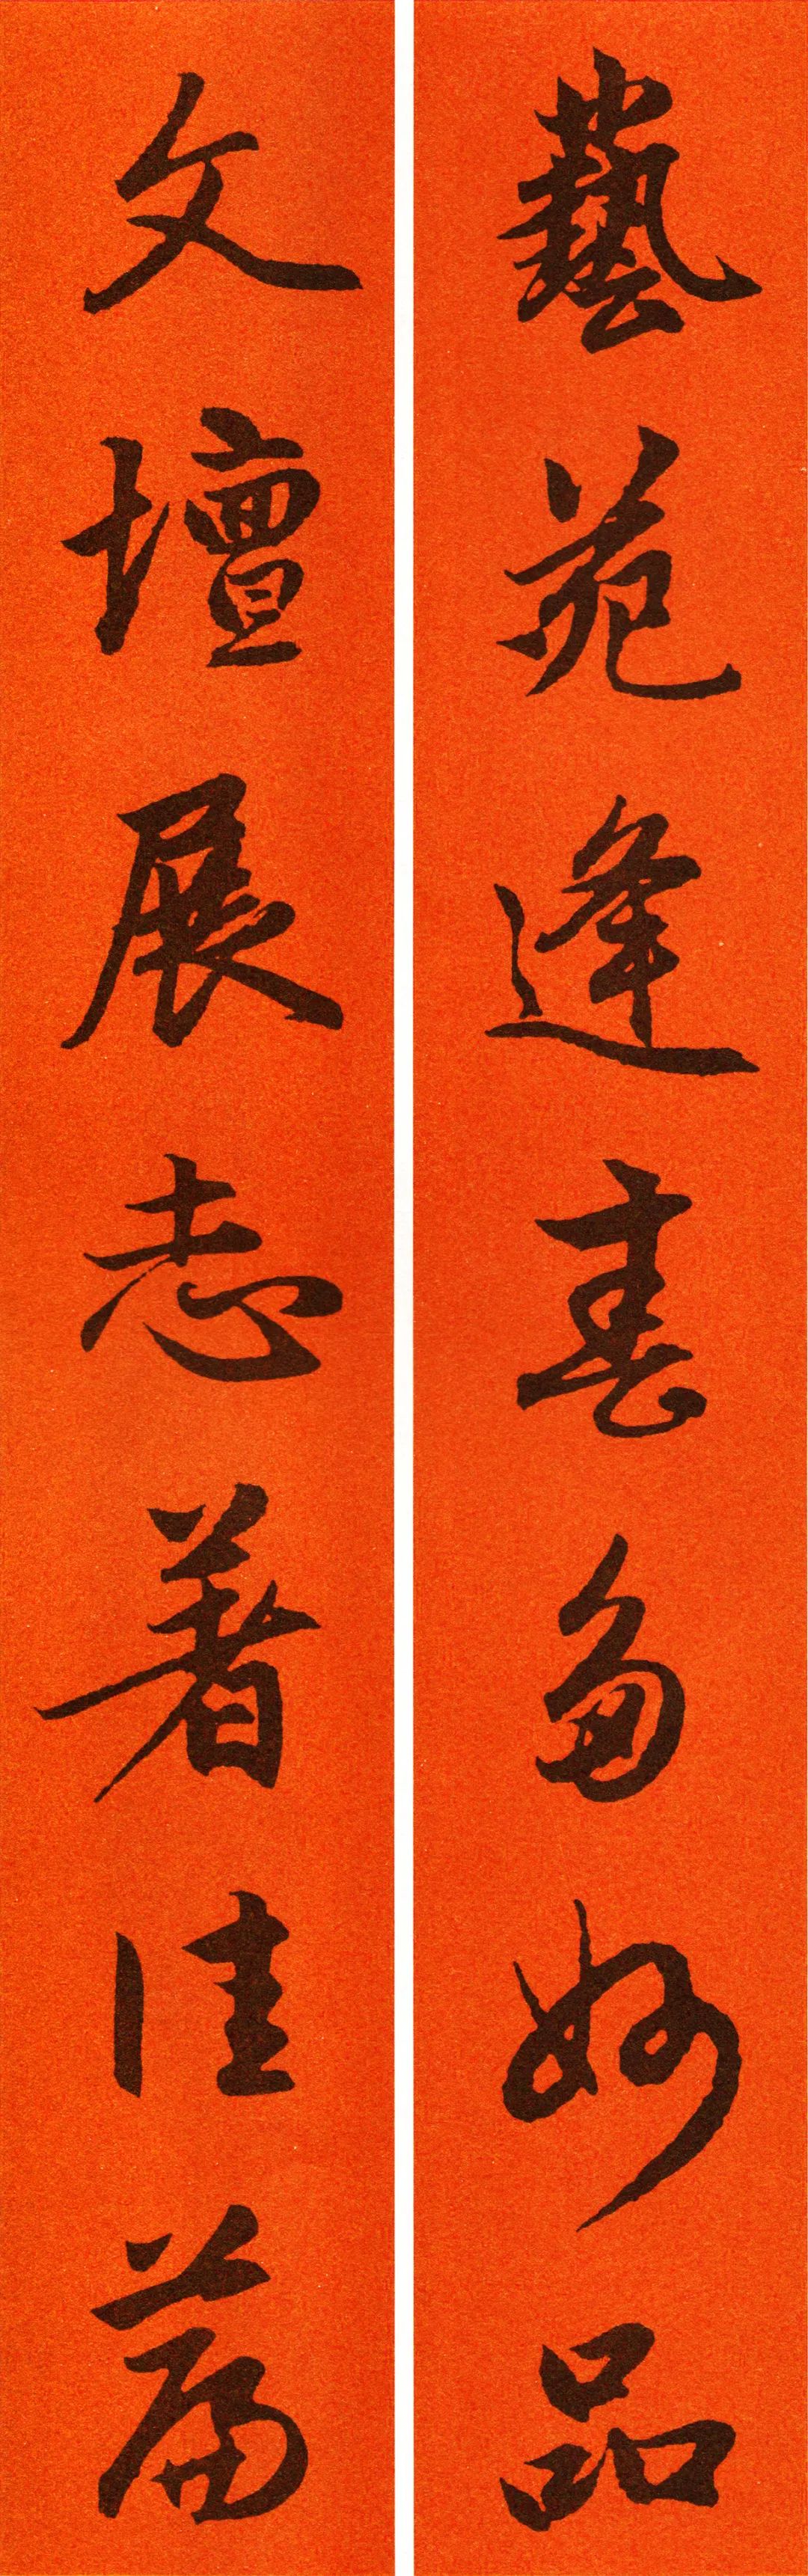 藝苑逢春多妙品
文壇展志著佳篇